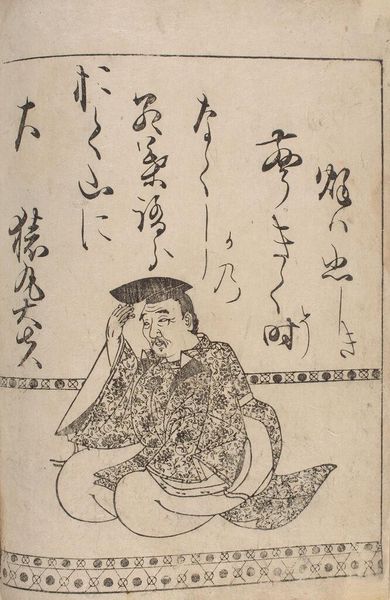 猿丸大夫
おく山に
紅葉踏分
なくしかの
声きく時そ
秋は悲しき